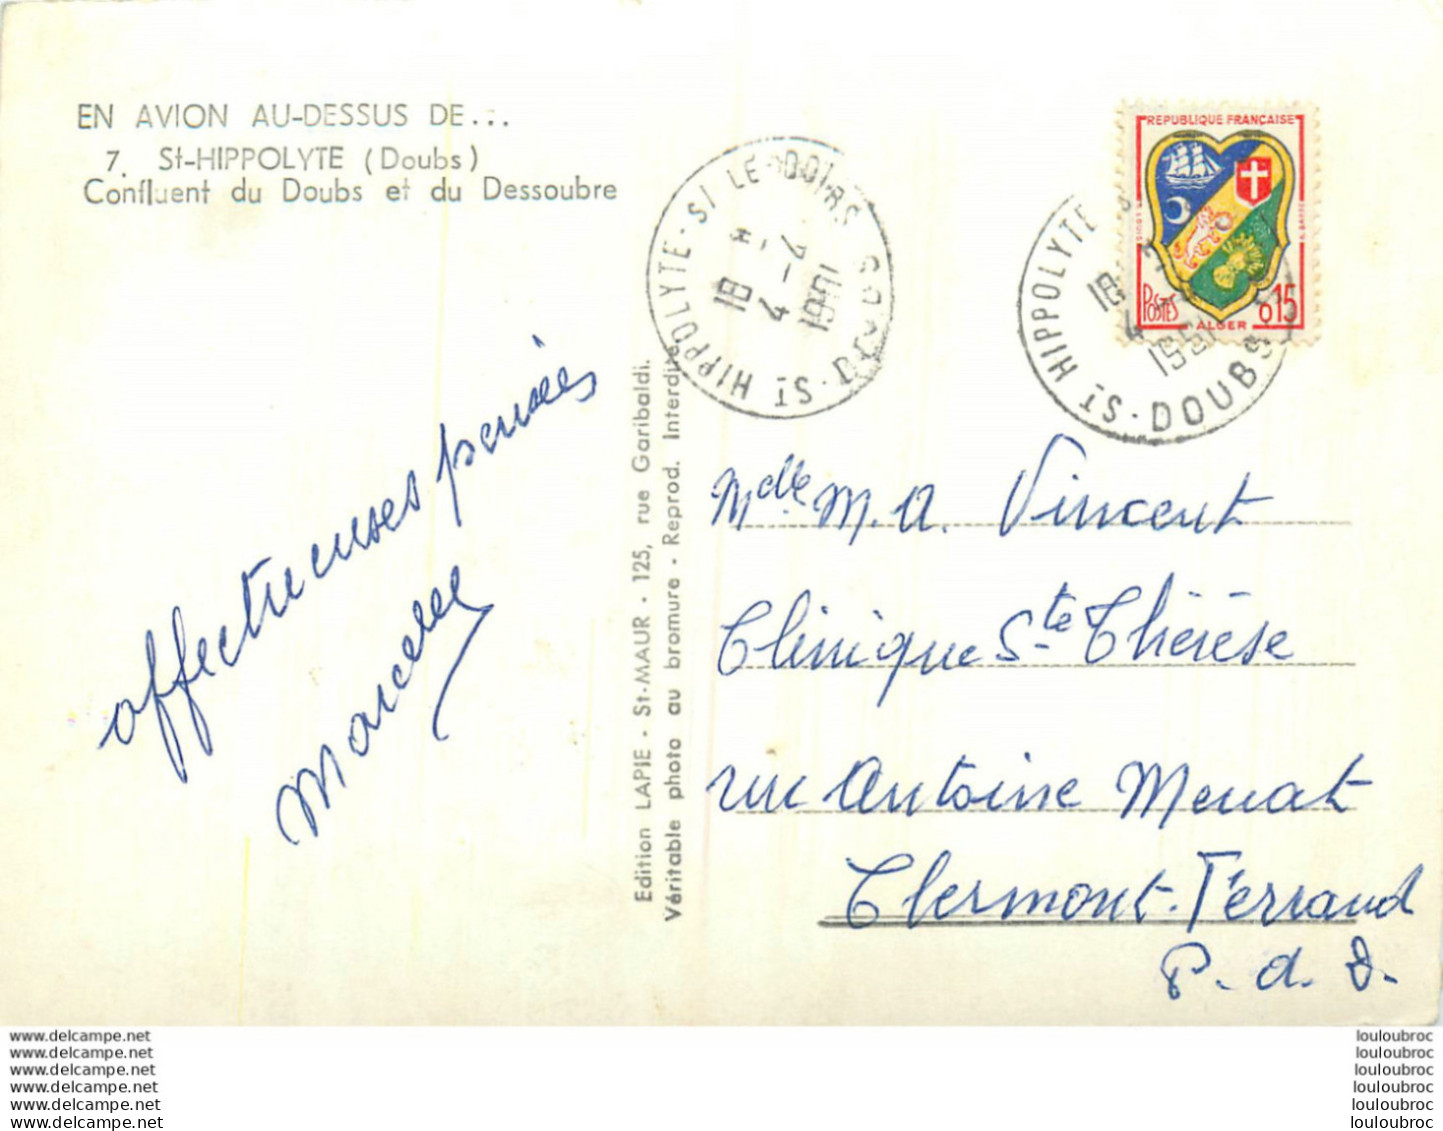 EN AVION AU-DESSUS DE...
7. St-HIPPOLYTE (Doubs)
Confluent du Doubs et du Dessoubre
affectueuses pensées
Marcelle
Edition LAPIE - St-MAUR - 125, rue Garibaldi.
Véritable photo au bromure - Reprod. Interdite
ST HIPPOLYTE-S/ LE DOUBS
18 H
4 - 4
REPUBLIQUE FRANÇAISE
POSTES
0,15
ALGER
ST HIPPOLYTE
18
DOUBS
Mdlle M. A. Vincent
Clinique Ste Thérèse
rue Antoine Menat
Clermont-Ferrand
P. d. D.
www.delcampe.net
www.delcampe.net
www.delcampe.net
www.delcampe.net
www.delcampe.net
www.delcampe.net
louloubroc
louloubroc
louloubroc
louloubroc
louloubroc
louloubroc